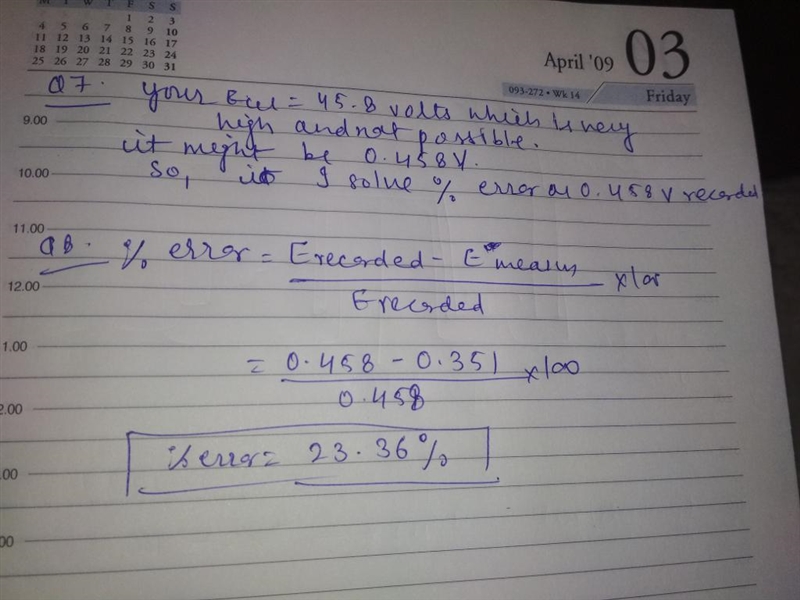 M T W T F S S
1 2 3
4 5 6 7 8 9 10
11 12 13 14 15 16 17
18 19 20 21 22 23 24
25 26 27 28 29 30 31
April '09 03
093-272 • Wk 14
Friday
Q7. Your Ecell = 45.8 volts which is very
high and not possible.
9.00
it might be 0.458V.
10.00
So, I solve % error as 0.458 V recorded
11.00
Q8. % error = Erecorded - E measus × 100
Erecorded
12.00
1.00
= 0.458 - 0.351 ×100
0.458
2.00
% error = 23.36%
.00
00